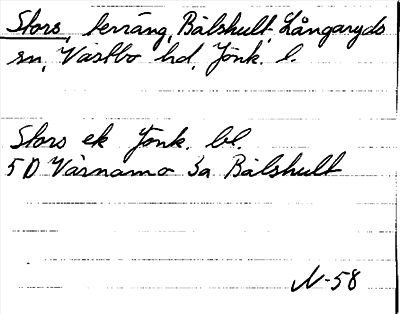 Stors, terräng, Bälshult, Långaryds
sn, Västbo hd, Jönk. l.
Stors ek Jönk. bl.
5 D Värnamo 3a Bälshult
N-58